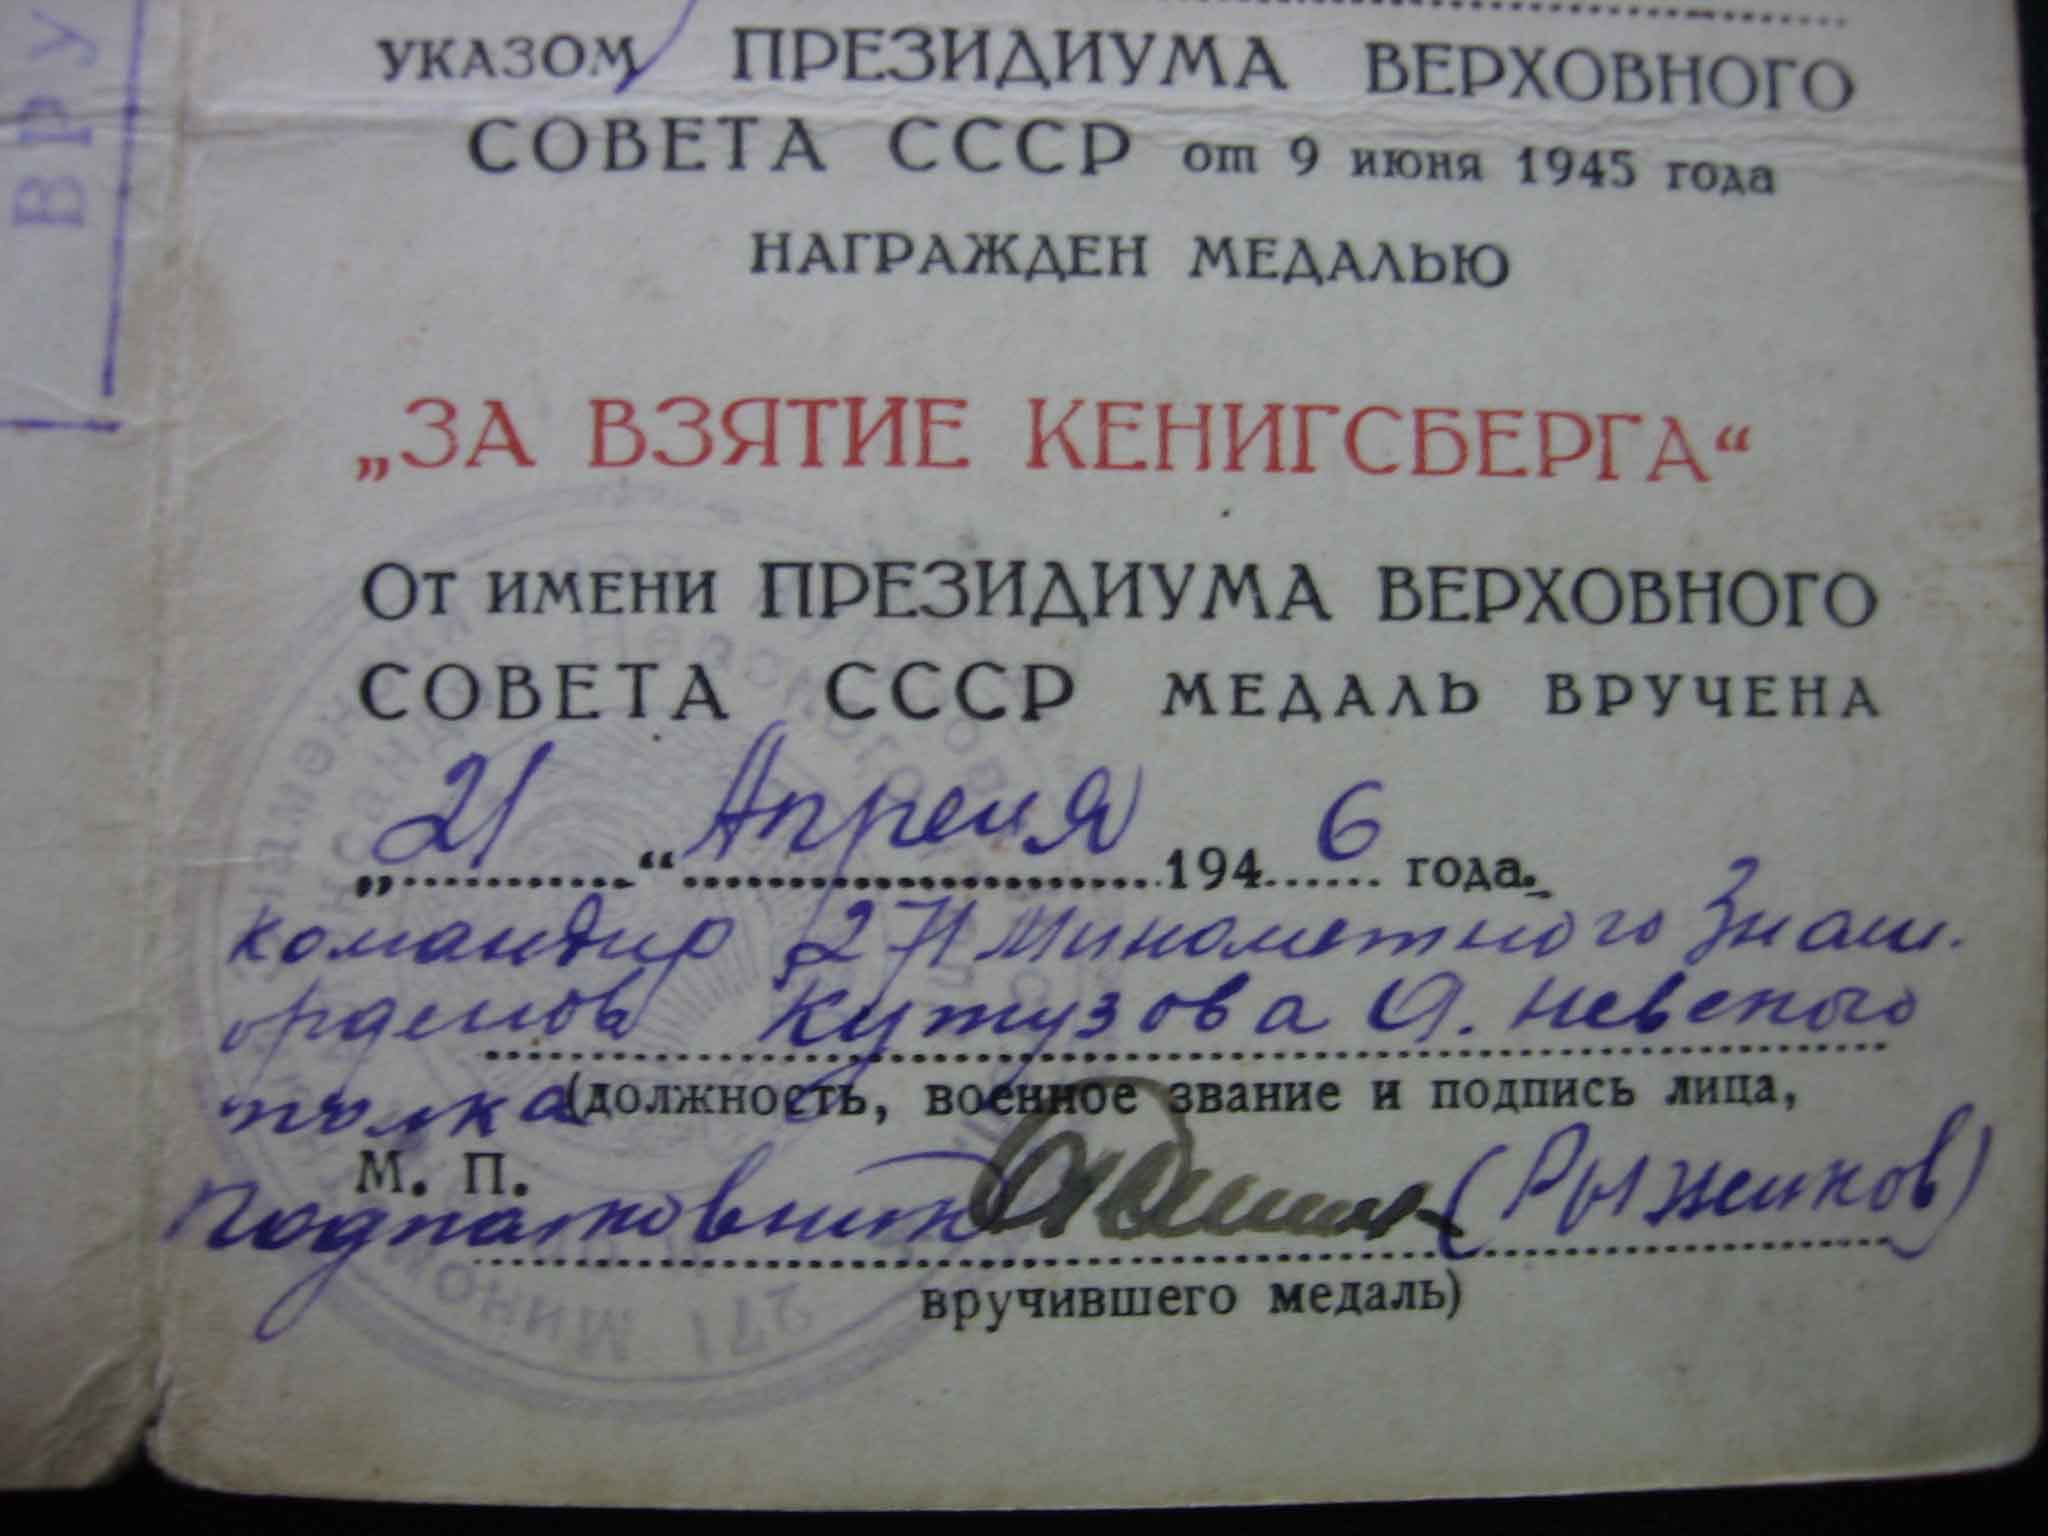 ВРУ
УКАЗОМ ПРЕЗИДИУМА ВЕРХОВНОГО
СОВЕТА СССР от 9 июня 1945 года
НАГРАЖДЕН МЕДАЛЬЮ
„ЗА ВЗЯТИЕ КЕНИГСБЕРГА“
ОТ ИМЕНИ ПРЕЗИДИУМА ВЕРХОВНОГО
СОВЕТА СССР МЕДАЛЬ ВРУЧЕНА
„21“ Апреля 1946 года.
командир 271 Минометного Знам.
орденов Кутузова А. Невского
полка (должность, военное звание и подпись лица,
М. П.
Подполковник (Рыженков)
вручившего медаль)
271 Мином